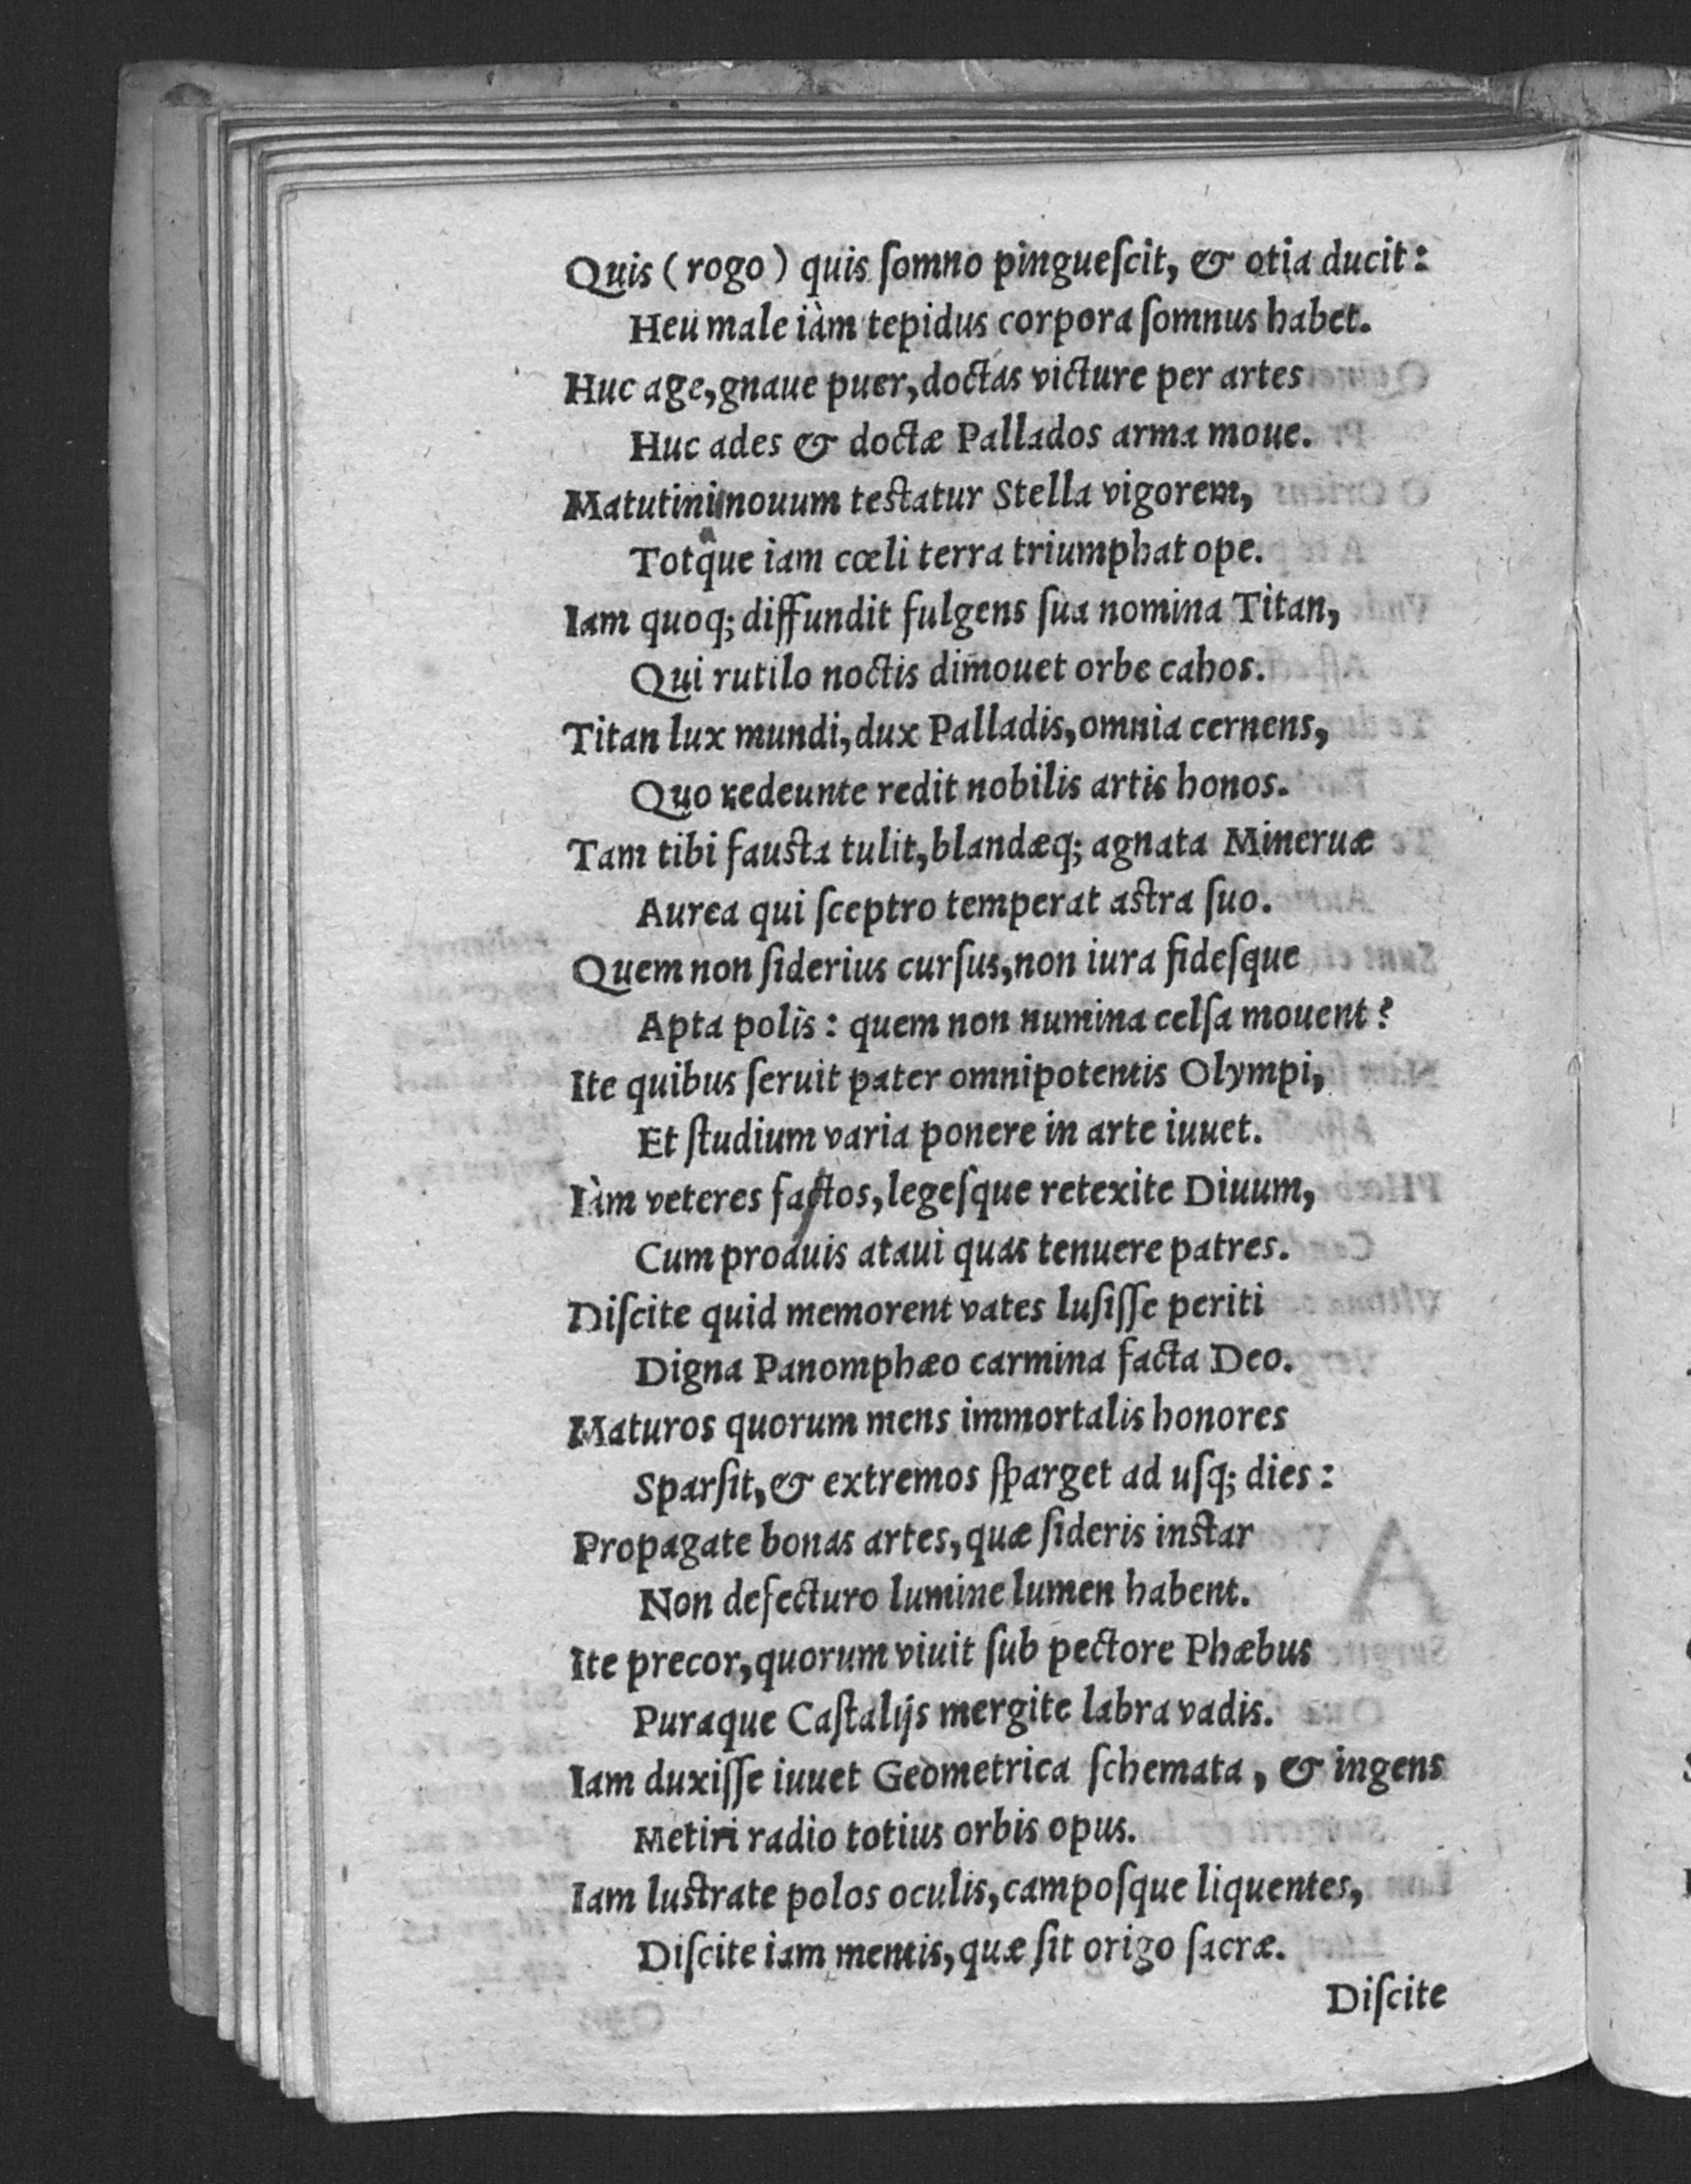 Quis (rogo) quis ſomno pingueſcit, & otia ducit:
Heu male iàm tepidus corpora ſomnus habet.
Huc age, gnaue puer, doctas victure per artes
Huc ades & doctæ Pallados arma moue.
Matutini nouum testatur Stella vigorem,
Totque iam cœli terra triumphat ope.
Iam quoq; diffundit fulgens ſua nomina Titan,
Qui rutilo noctis dimouet orbe cahos.
Titan lux mundi, dux Palladis, omnia cernens,
Quo redeunte redit nobilis artis honos.
Tam tibi fausta tulit, blandæq; agnata Mineruæ
Aurea qui ſceptro temperat astra ſuo.
Quem non ſiderius curſus, non iura fideſque
Apta polis: quem non numina celſa mouent?
Ite quibus ſeruit pater omnipotentis Olympi,
Et ſtudium varia ponere in arte iuuet.
Iàm veteres faſtos, legeſque retexite Diuum,
Cum proauis ataui quas tenuere patres.
Diſcite quid memorent vates luſiſſe periti
Digna Panomphæo carmina facta Deo.
Maturos quorum mens immortalis honores
Sparſit, & extremos ſparget ad uſq; dies:
Propagate bonas artes, quæ ſideris instar
Non defecturo lumine lumen habent.
Ite precor, quorum viuit ſub pectore Phæbus
Puraque Caſtalijs mergite labra vadis.
Iam duxiſſe iuuet Geometrica ſchemata, & ingens
Metiri radio totius orbis opus.
Iam lustrate polos oculis, campoſque liquentes,
Diſcite iam mentis, quæ ſit origo ſacræ.
Diſcite